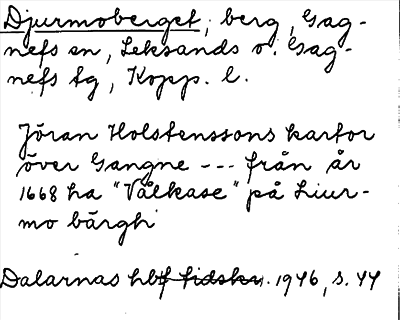 Djurmoberget, berg, Gag-
nefs sn, Leksands o. Gag-
nefs tg, Kopp. l.
Jöran Holstenssons kartor
över Gangne --- från år
1668 ha "Vålkase" på Liur-
mo bärgh
Dalarnas hbf tidskr. 1946, s. 44